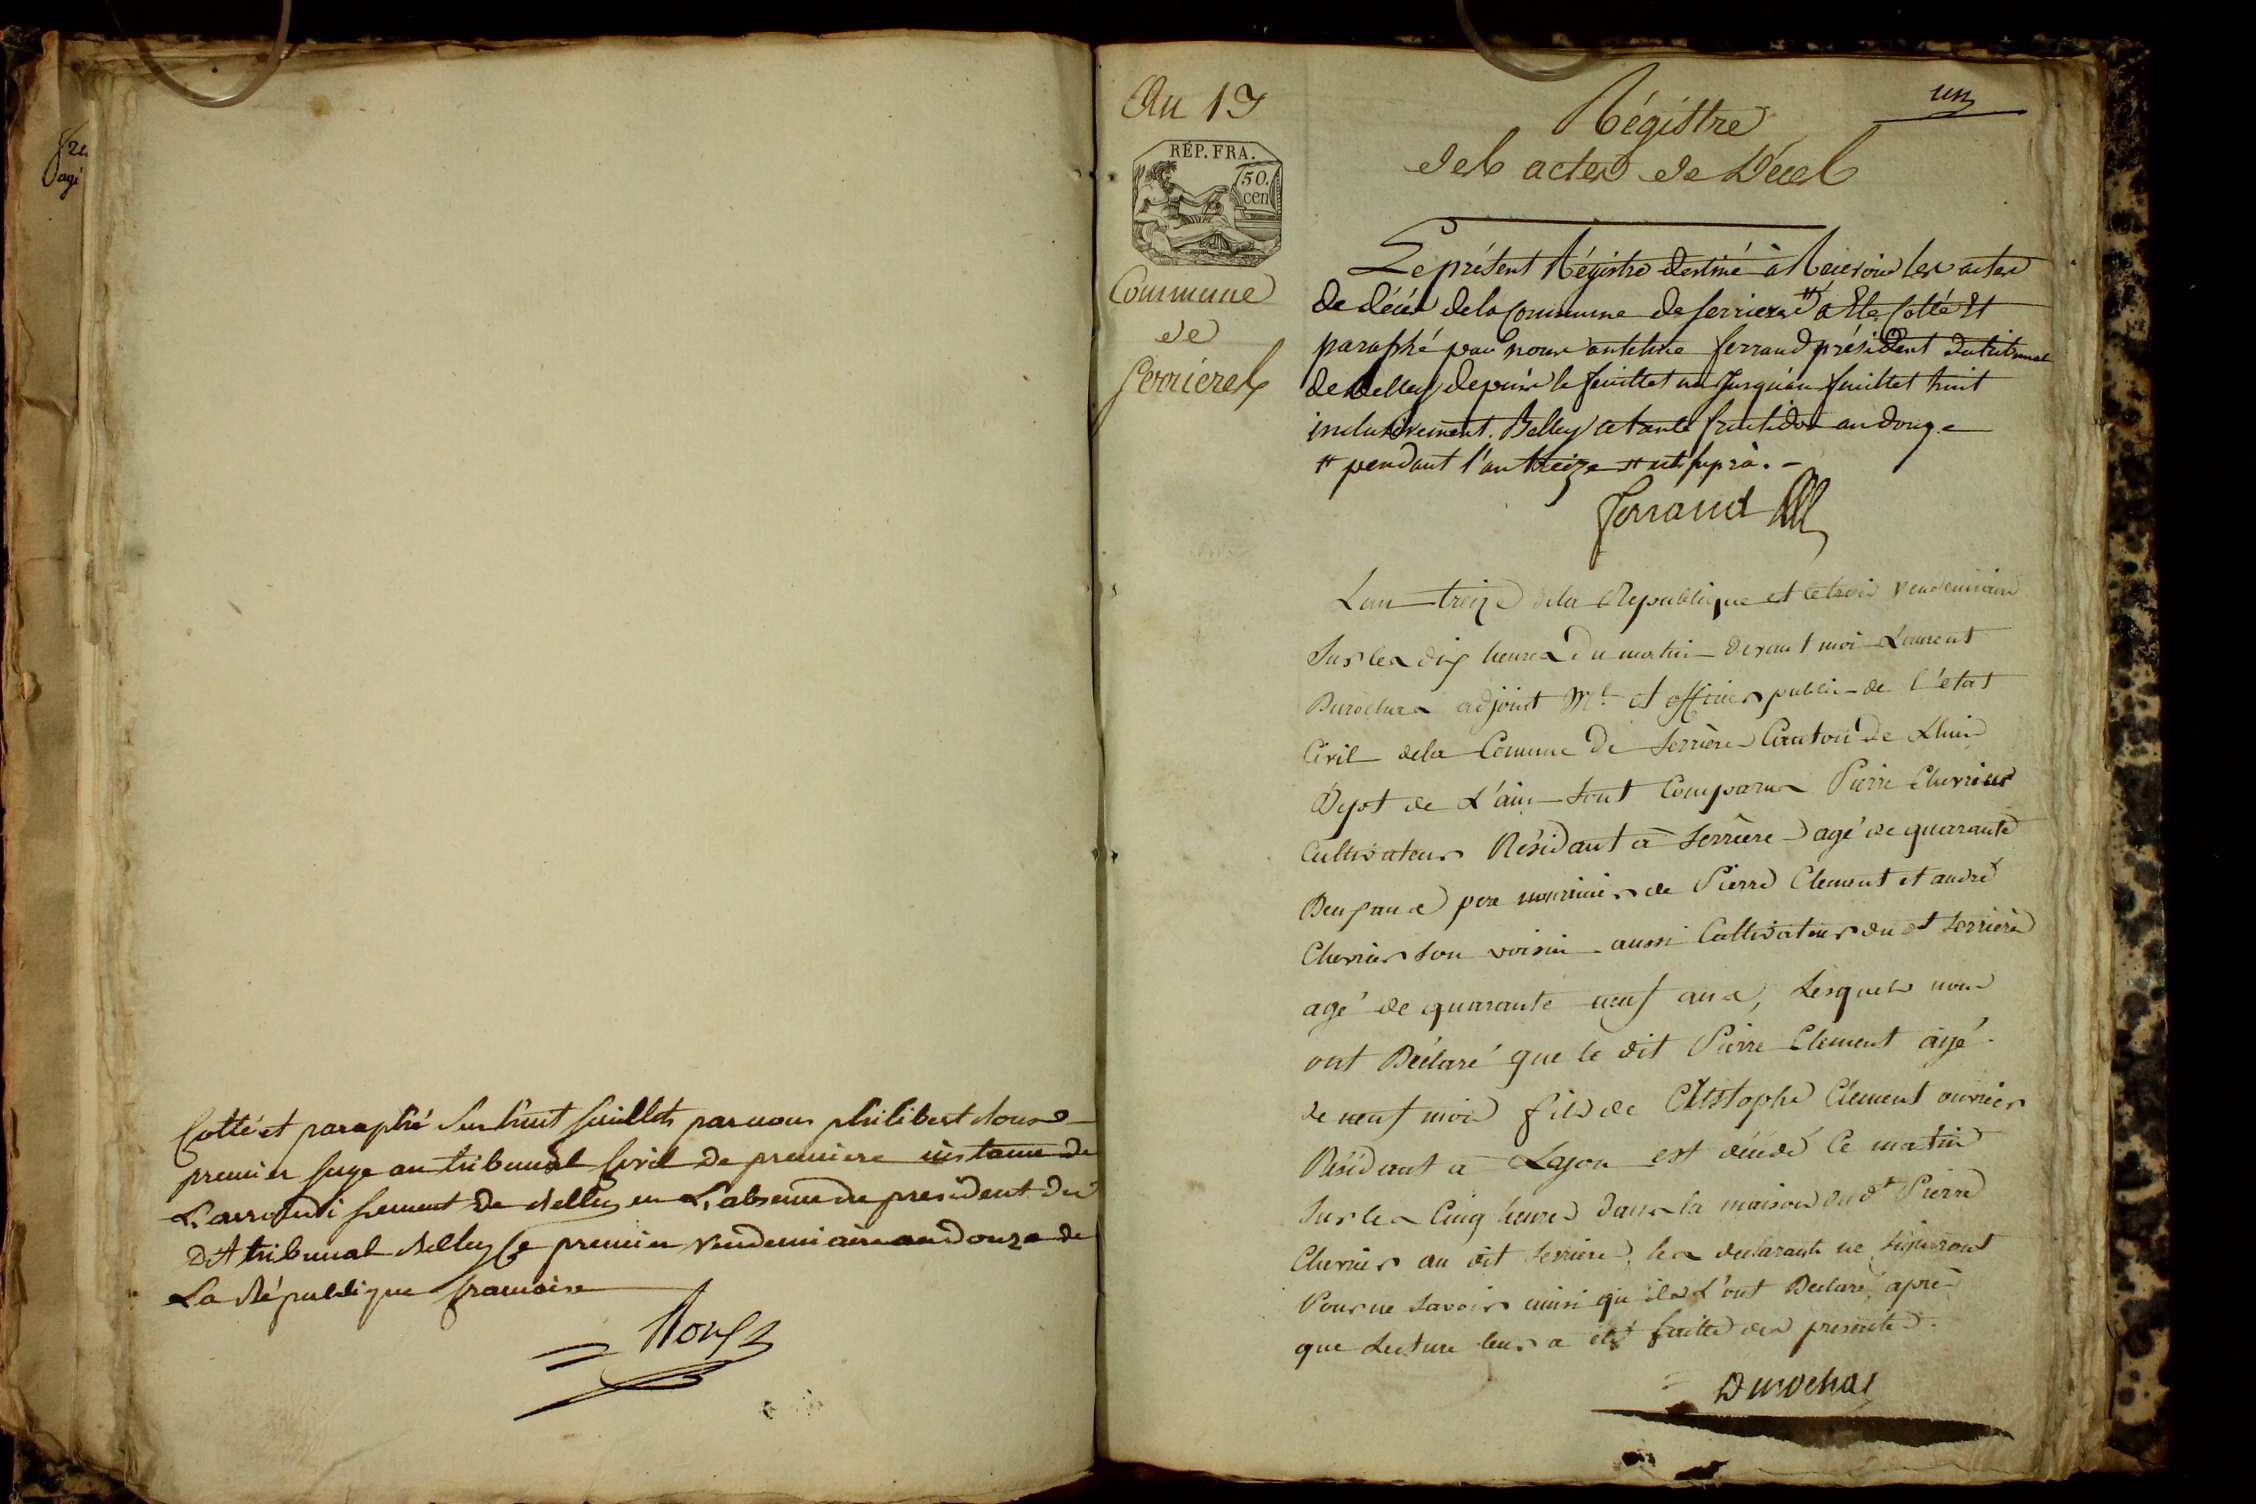 Cotté et paraphé sur huit feuillets par nous philibert
premier juge au tribunal Civil de premiere instance de
L'arrondissement de Belley en L'absence du president du
Dt tribunal Belley Ce premier vendemiaire an Douze de
La République francaise
Roux
An 13
RÉP. FRA.
50.
cen
Commune
de
Serrieres
un
Régistre
des actes de Décès
Le présent Régistre destiné à Recevoir les actes
de décès de la Commune de serrieres # a Eté Cotté Et
paraphé par nous anthelme ferrand président du tribunal
de Belley depuis le feuillet un Jusqu'au feuillet huit
inclusivement. Belley ce fructidor an douze
# pendant l'an treize # ut suprà.
ferrand
L'an treize de la Republique et le trois vendemiaire
Sur les dix heures Du matin devant moi Laurent
Durochas adjoint Ml. et officier public de l'état
Civil de la Comune De Serriere Canton de Lhuis
Dept de L'ain Sont Comparus Pierre Chevrier
Cultivateur Résidant à Serriere agé de quarante
Deux ans pere nourricier de Pierre Clement et andré
Chevrier son voisin aussi Cultivateur du dt Serriere
agé de quarante neuf ans, Lesquels nous
ont Déclaré que le dit Pierre Clement agé
de neuf mois fils de Christophe Clement ouvrier
Résidant à Lyon est décédé Ce matin
Sur les Cinq heures dans la maison du dt Pierre
Chevrier au dit Serriere, les declarants ne signeront
Pour ne Savoir ainsi qu'ils L'ont Declaré après
que Lecture leur a été faitte des presentes.
Durochas